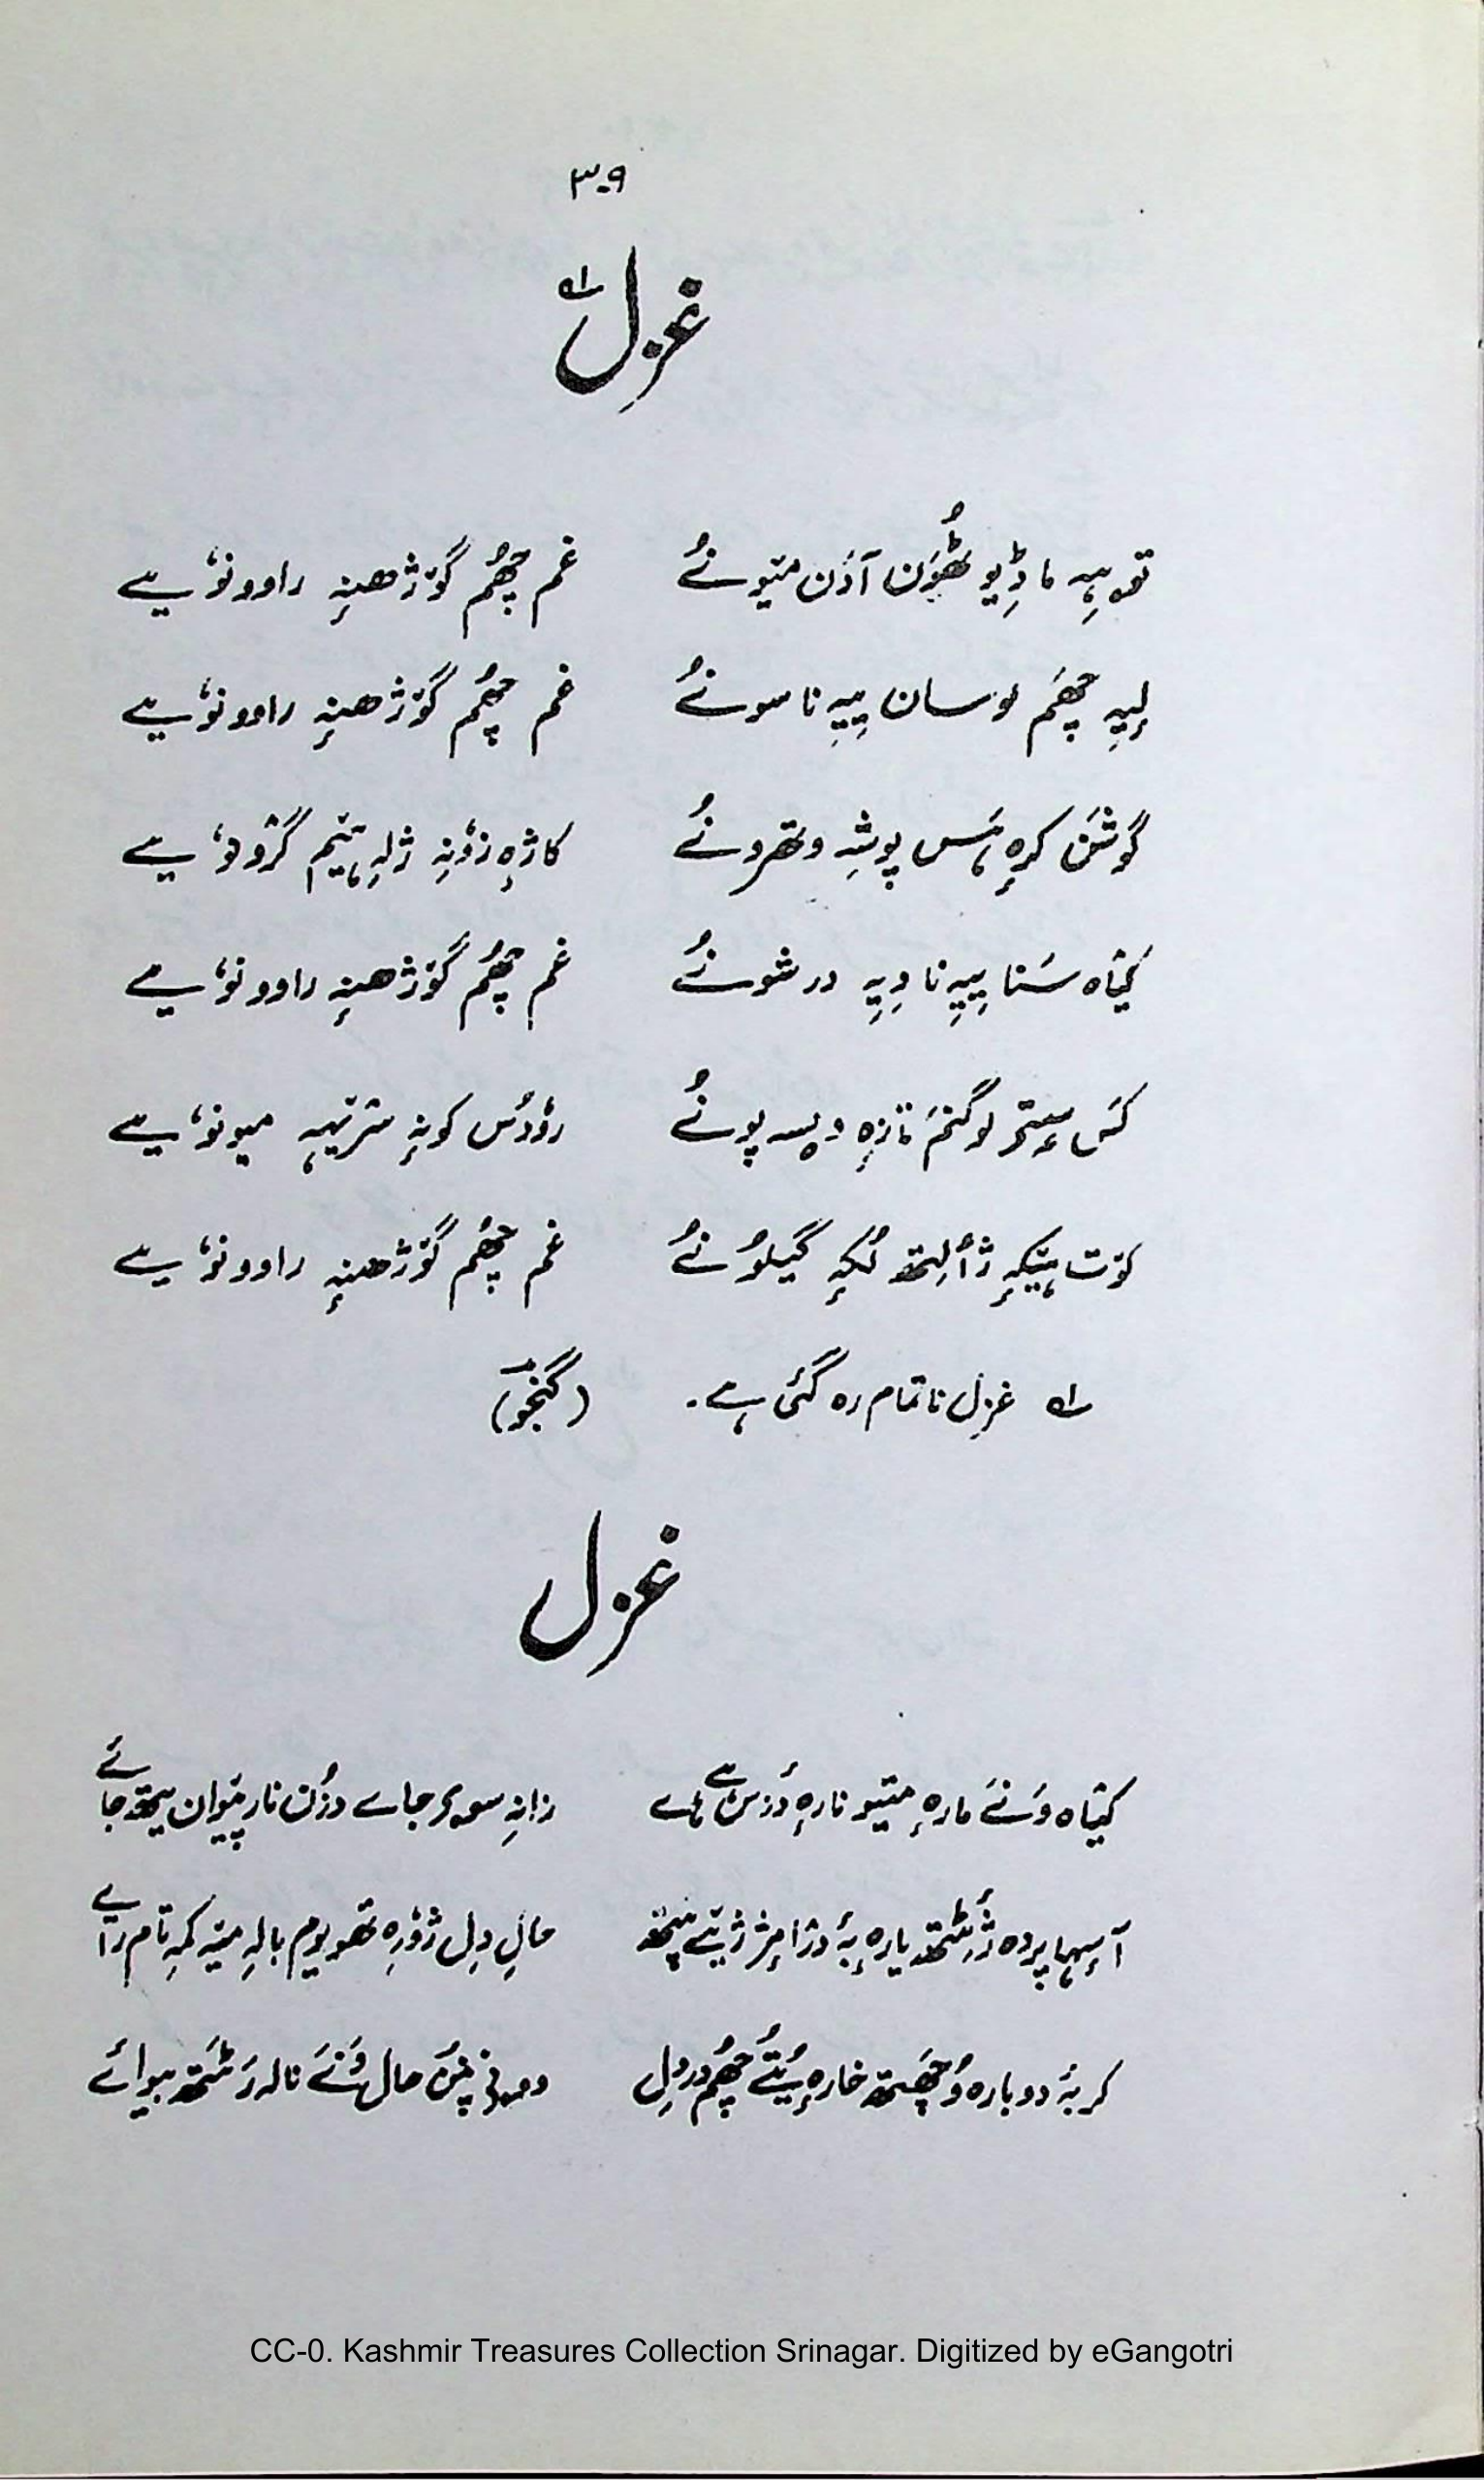 ۳۰۹
غزل ؎۱
تۄہیہ ما ڈیوٗٹھُوَن آدَن متیو نُے غم چھُم گوٚژھنہٕ راوو نوٗیے
لیہٕ چھَم لوسان ییہِ نا سونُے غم چھُم گوٚژھنہٕ راوو نوٗیے
گوشَن کرٕہ ہَس پوشہِ وتھرو نُے کاژٕہ زوٗنہِ ژلہِ ہیٚتم گرٛوٗ نوٗیے
کیٛاہ سَنا ییہِ نا دِیہِ درشو نُے غم چھُم گوٚژھنہٕ راوو نوٗیے
کَس سٟتۍ لوگنَم تازٕہ ویسہ پو نُے روٗدُس کونہٕ شرٛنٛہہ میو نوٗیے
کوٚت ہیٚکہٕ ژٲلِتھ لُکہٕ گیلوٗ نُے غم چھُم گوٚژھنہٕ راوو نوٗیے
؎۱ غزل ناتمام رہ گئی ہے۔ (گنجوؔ)
غزل
کیٛاہ وَنَے مارٕہ متیو نارٕہ دٔزس ہے ہے زانہِ سۄے جاے دزُن نار پیٚوان یتھ جائے
پردہ ژٔٹِتھ یارٕہ بہٕ درٛامٕژ ژیٚے پتھ حالِ دِل ژوٗرِہ تھوویم بالہِ میٚہ کمہِ تام رایے
کر بہٕ دوبارہ وُچھتھ خارٕہ یُتُے چھُم در دِل حال وَنَے نالہ رَٹَتھ بیوائے
CC-0. Kashmir Treasures Collection Srinagar. Digitized by eGangotri